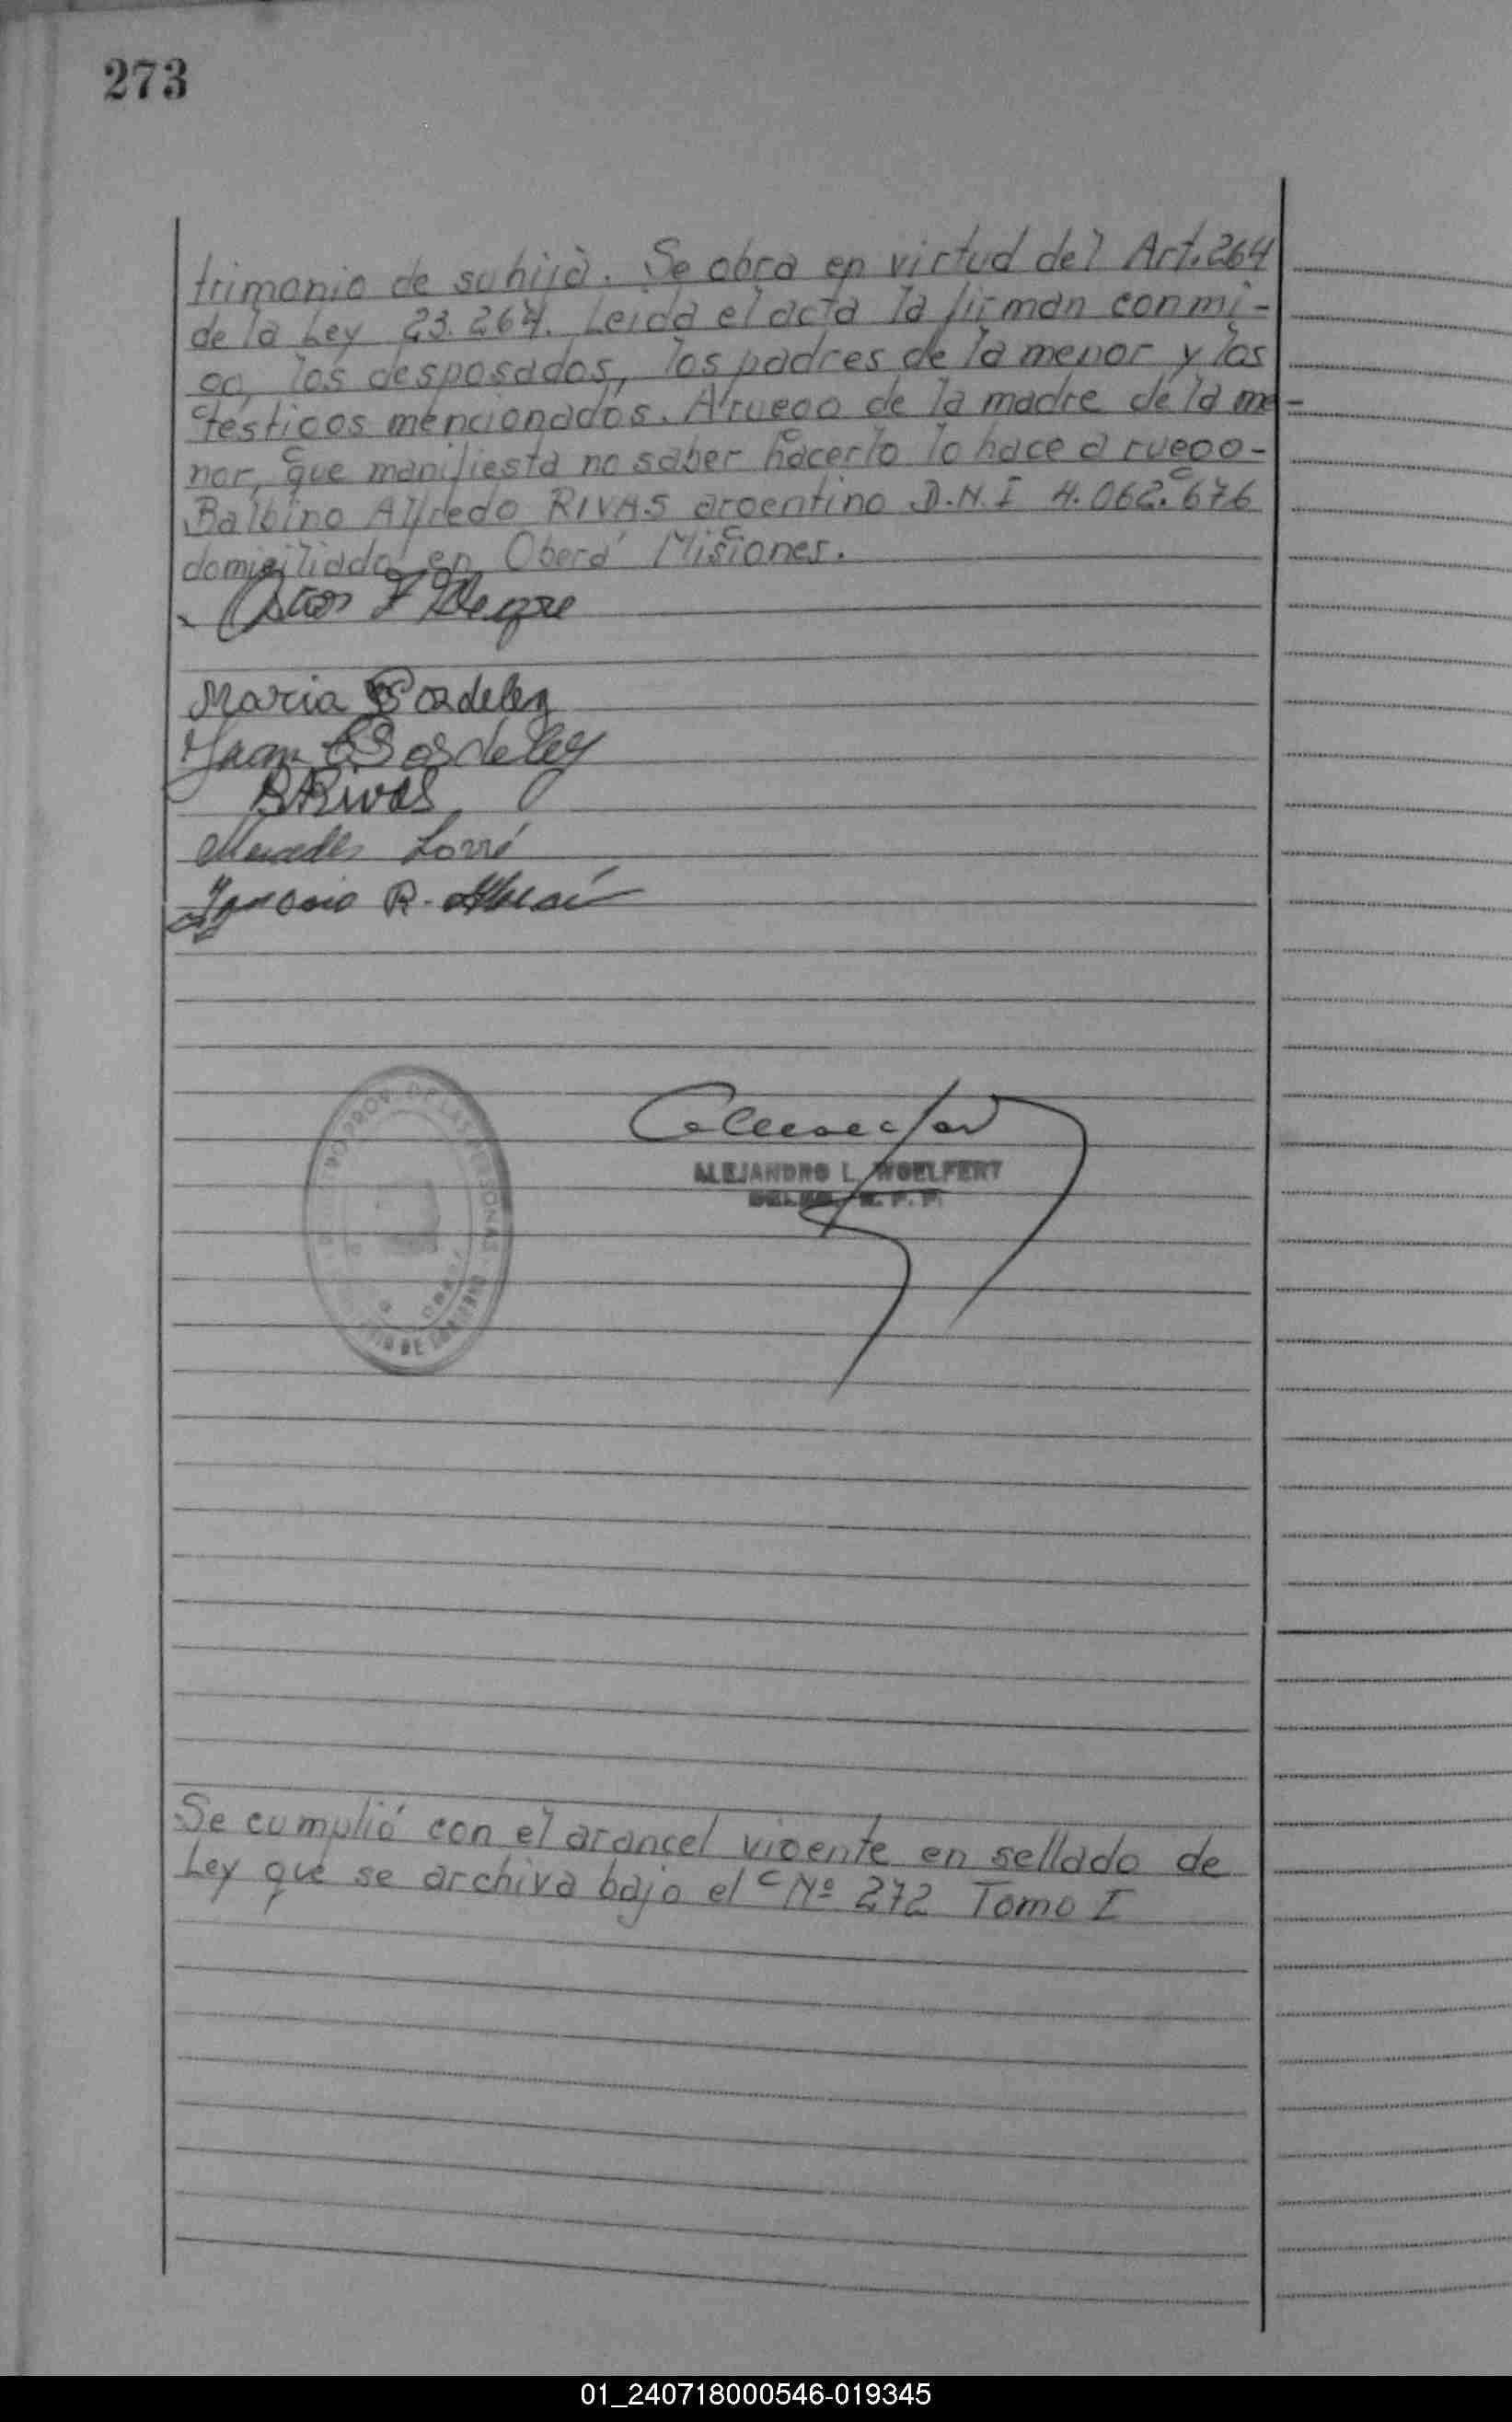 273
trimonio de su hija. Se obra en virtud del Art. 264
de la Ley 23.264. Leida el acta la firman conmi-
go, los desposados, los padres de la menor y los
testigos mencionados. A ruego de la madre de la me-
nor, que manifiesta no saber hacerlo lo hace a ruego-
Balbino Alfredo RIVAS argentino D.N.I 4.062.676
domiciliado en Oberá Misiones.
Maria Bordeley
Juan Bordeley
BARivas
Mercedes
Ignacio R.
ALEJANDRO L. WOELFERT
Se cumplió con el arancel vigente en sellado de
Ley que se archiva bajo el Nº 272 Tomo I
01_240718000546-019345